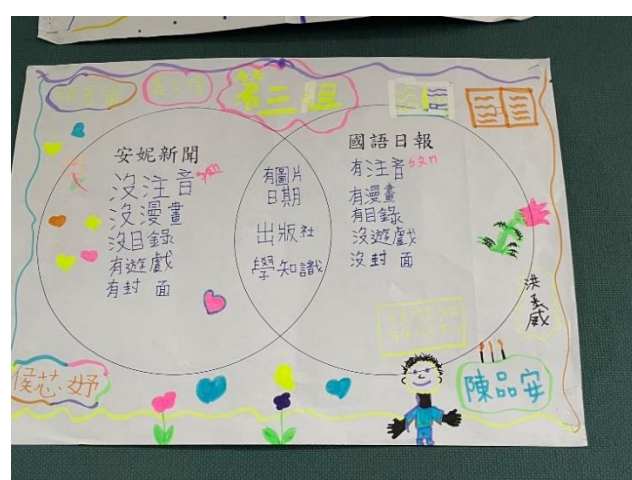 第三組
安妮新聞
沒注音ㄅㄆㄇ
沒漫畫
沒目錄
有遊戲
有封面
有圖片
日期
出版社
學知識
國語日報
有注音ㄅㄆㄇ
有漫畫
有目錄
沒遊戲
沒封面
侯芯妤
陳品安